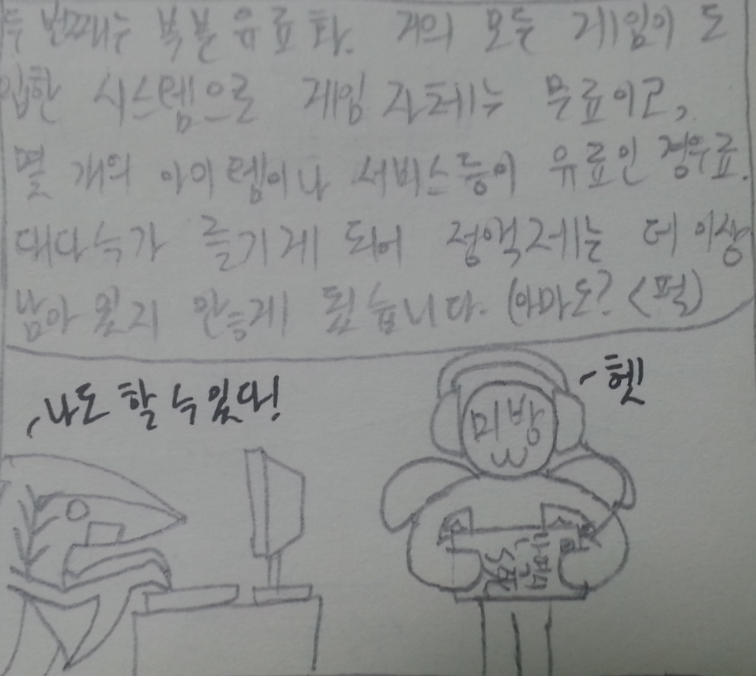 두 번째는 부분유료화. 거의 모든 게임이 도
입한 시스템으로 게임 자체는 무료이고,
몇 개의 아이템이나 서비스등이 유료인 경우죠.
대다수가 즐기게 되어 정액제는 더 이상
남아 있지 않게 됬습니다. (아마도? <퍽)
나도 할 수 있다!
헷
미방